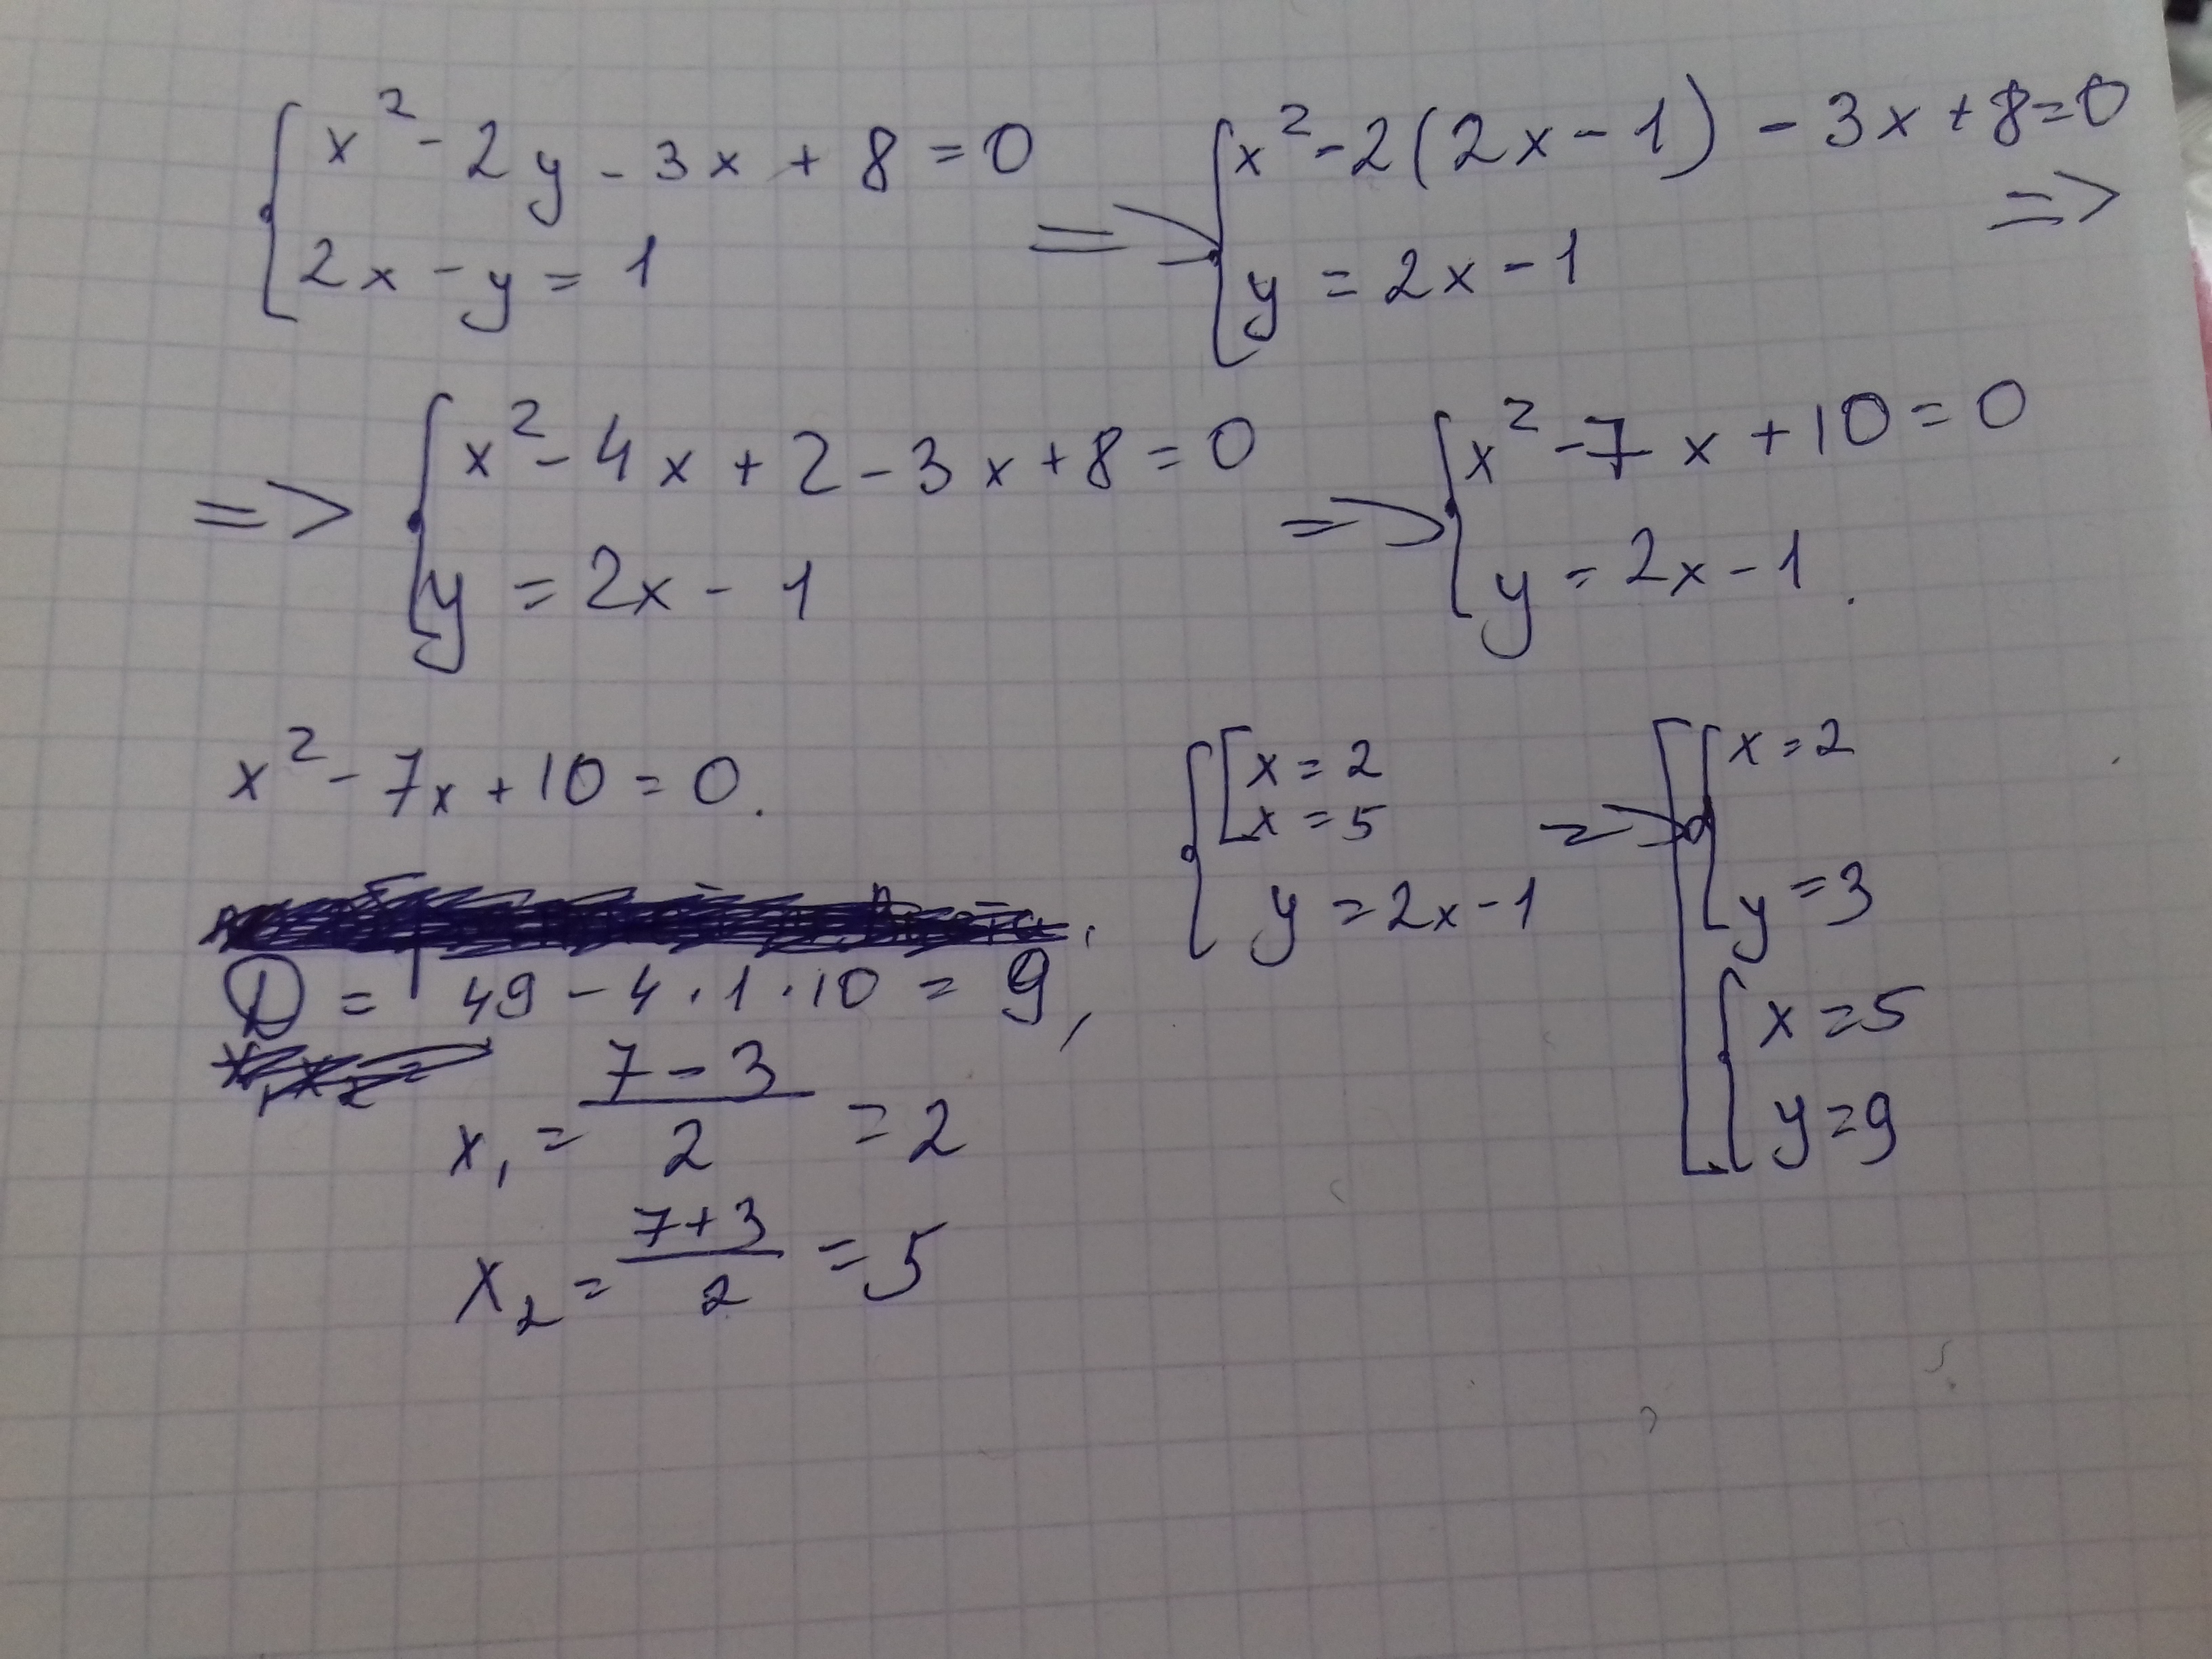 { x² - 2y - 3x + 8 = 0 => { x² - 2(2x - 1) - 3x + 8 = 0 =>
2x - y = 1 y = 2x - 1
=> { x² - 4x + 2 - 3x + 8 = 0 => { x² - 7x + 10 = 0
y = 2x - 1 y = 2x - 1.
x² - 7x + 10 = 0.
D = 49 - 4 · 1 · 10 = 9,
x₁ = (7 - 3)/2 = 2
x₂ = (7 + 3)/2 = 5
{ [ x = 2
x = 5
y = 2x - 1
=> [ { x = 2
y = 3
{ x = 5
y = 9